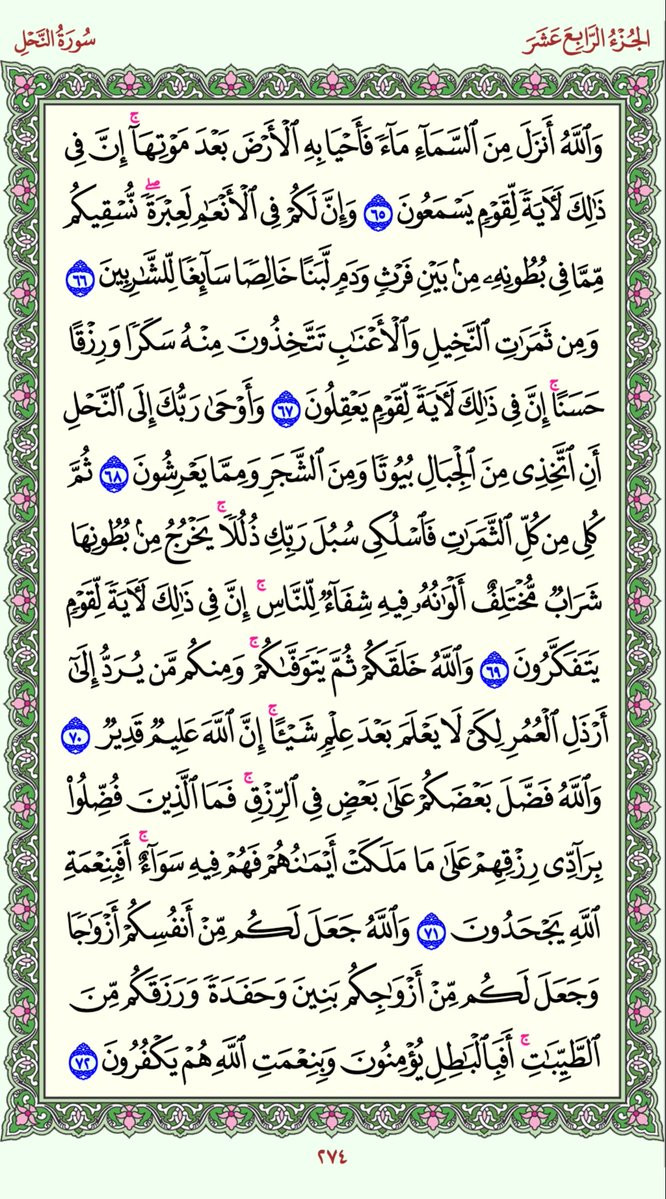 الجُزْءُ الرَّابِعَ عَشَرَ
سُورَةُ النَّحْلِ
وَٱللَّهُ أَنزَلَ مِنَ ٱلسَّمَآءِ مَآءٗ فَأَحۡيَا بِهِ ٱلۡأَرۡضَ بَعۡدَ مَوۡتِهَآۚ إِنَّ فِي
ذَٰلِكَ لَأٓيَةٗ لِّقَوۡمٖ يَسۡمَعُونَ ٦٥ وَإِنَّ لَكُمۡ فِي ٱلۡأَنۡعَٰمِ لَعِبۡرَةٗۖ نُّسۡقِيكُم
مِّمَّا فِي بُطُونِهِۦ مِنۢ بَيۡنِ فَرۡثٖ وَدَمٖ لَّبَنًا خَالِصٗا سَآئِغٗا لِّلشَّٰرِبِينَ ٦٦
وَمِن ثَمَرَٰتِ ٱلنَّخِيلِ وَٱلۡأَعۡنَٰبِ تَتَّخِذُونَ مِنۡهُ سَكَرٗا وَرِزۡقًا
حَسَنًاۚ إِنَّ فِي ذَٰلِكَ لَأٓيَةٗ لِّقَوۡمٖ يَعۡقِلُونَ ٦٧ وَأَوۡحَىٰ رَبُّكَ إِلَى ٱلنَّحۡلِ
أَنِ ٱتَّخِذِي مِنَ ٱلۡجِبَالِ بُيُوتٗا وَمِنَ ٱلشَّجَرِ وَمِمَّا يَعۡرِشُونَ ٦٨ ثُمَّ
كُلِي مِن كُلِّ ٱلثَّمَرَٰتِ فَٱسۡلُكِي سُبُلَ رَبِّكِ ذُلُلٗاۚ يَخۡرُجُ مِنۢ بُطُونِهَا
شَرَابٞ مُّخۡتَلِفٌ أَلۡوَٰنُهُۥ فِيهِ شِفَآءٞ لِّلنَّاسِۚ إِنَّ فِي ذَٰلِكَ لَأٓيَةٗ لِّقَوۡمٖ
يَتَفَكَّرُونَ ٦٩ وَٱللَّهُ خَلَقَكُمۡ ثُمَّ يَتَوَفَّىٰكُمۡۚ وَمِنكُم مَّن يُرَدُّ إِلَىٰٓ
أَرۡذَلِ ٱلۡعُمُرِ لِكَيۡ لَا يَعۡلَمَ بَعۡدَ عِلۡمٖ شَيۡـًٔاۚ إِنَّ ٱللَّهَ عَلِيمٞ قَدِيرٞ ٧٠
وَٱللَّهُ فَضَّلَ بَعۡضَكُمۡ عَلَىٰ بَعۡضٖ فِي ٱلرِّزۡقِۚ فَمَا ٱلَّذِينَ فُضِّلُواْ
بِرَآدِّي رِزۡقِهِمۡ عَلَىٰ مَا مَلَكَتۡ أَيۡمَٰنُهُمۡ فَهُمۡ فِيهِ سَوَآءٌۚ أَفَبِنِعۡمَةِ
ٱللَّهِ يَجۡحَدُونَ ٧١ وَٱللَّهُ جَعَلَ لَكُم مِّنۡ أَنفُسِكُمۡ أَزۡوَٰجٗا
وَجَعَلَ لَكُم مِّنۡ أَزۡوَٰجِكُم بَنِينَ وَحَفَدَةٗ وَرَزَقَكُم مِّنَ
ٱلطَّيِّبَٰتِۚ أَفَبِٱلۡبَٰطِلِ يُؤۡمِنُونَ وَبِنِعۡمَتِ ٱللَّهِ هُمۡ يَكۡفُرُونَ ٧٢
٢٧٤